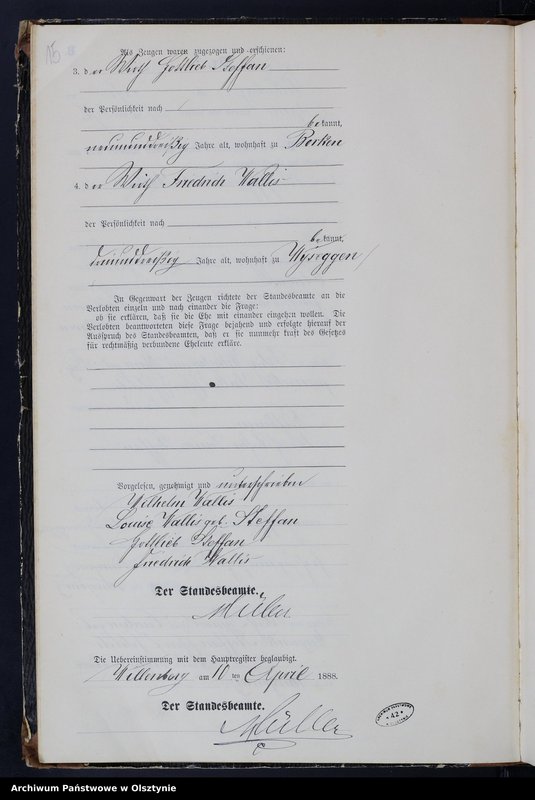 15
Als Zeugen waren zugezogen und erschienen:
3. der Wirth Gottlieb Steffan
der Persönlichkeit nach
bekannt,
neununddreißig Jahre alt, wohnhaft zu Borken
4. der Wirth Friedrich Wallis
der Persönlichkeit nach
bekannt,
dreiunddreißig Jahre alt, wohnhaft zu Wyseggen
In Gegenwart der Zeugen richtete der Standesbeamte an die
Verlobten einzeln und nach einander die Frage:
ob sie erklären, daß sie die Ehe mit einander eingehen wollen. Die
Verlobten beantworteten diese Frage bejahend und erfolgte hierauf der
Ausspruch des Standesbeamten, daß er sie nunmehr kraft des Gesetzes
für rechtmäßig verbundene Eheleute erkläre.
Vorgelesen, genehmigt und unterschrieben
Wilhelm Wallis
Louise Wallis geb. Steffan
Gottlieb Steffan
Friedrich Wallis
Der Standesbeamte.
Müller
Die Uebereinstimmung mit dem Hauptregister beglaubigt.
Willenberg am 10 ten April 1888.
Der Standesbeamte.
Müller
42
Archiwum Państwowe w Olsztynie